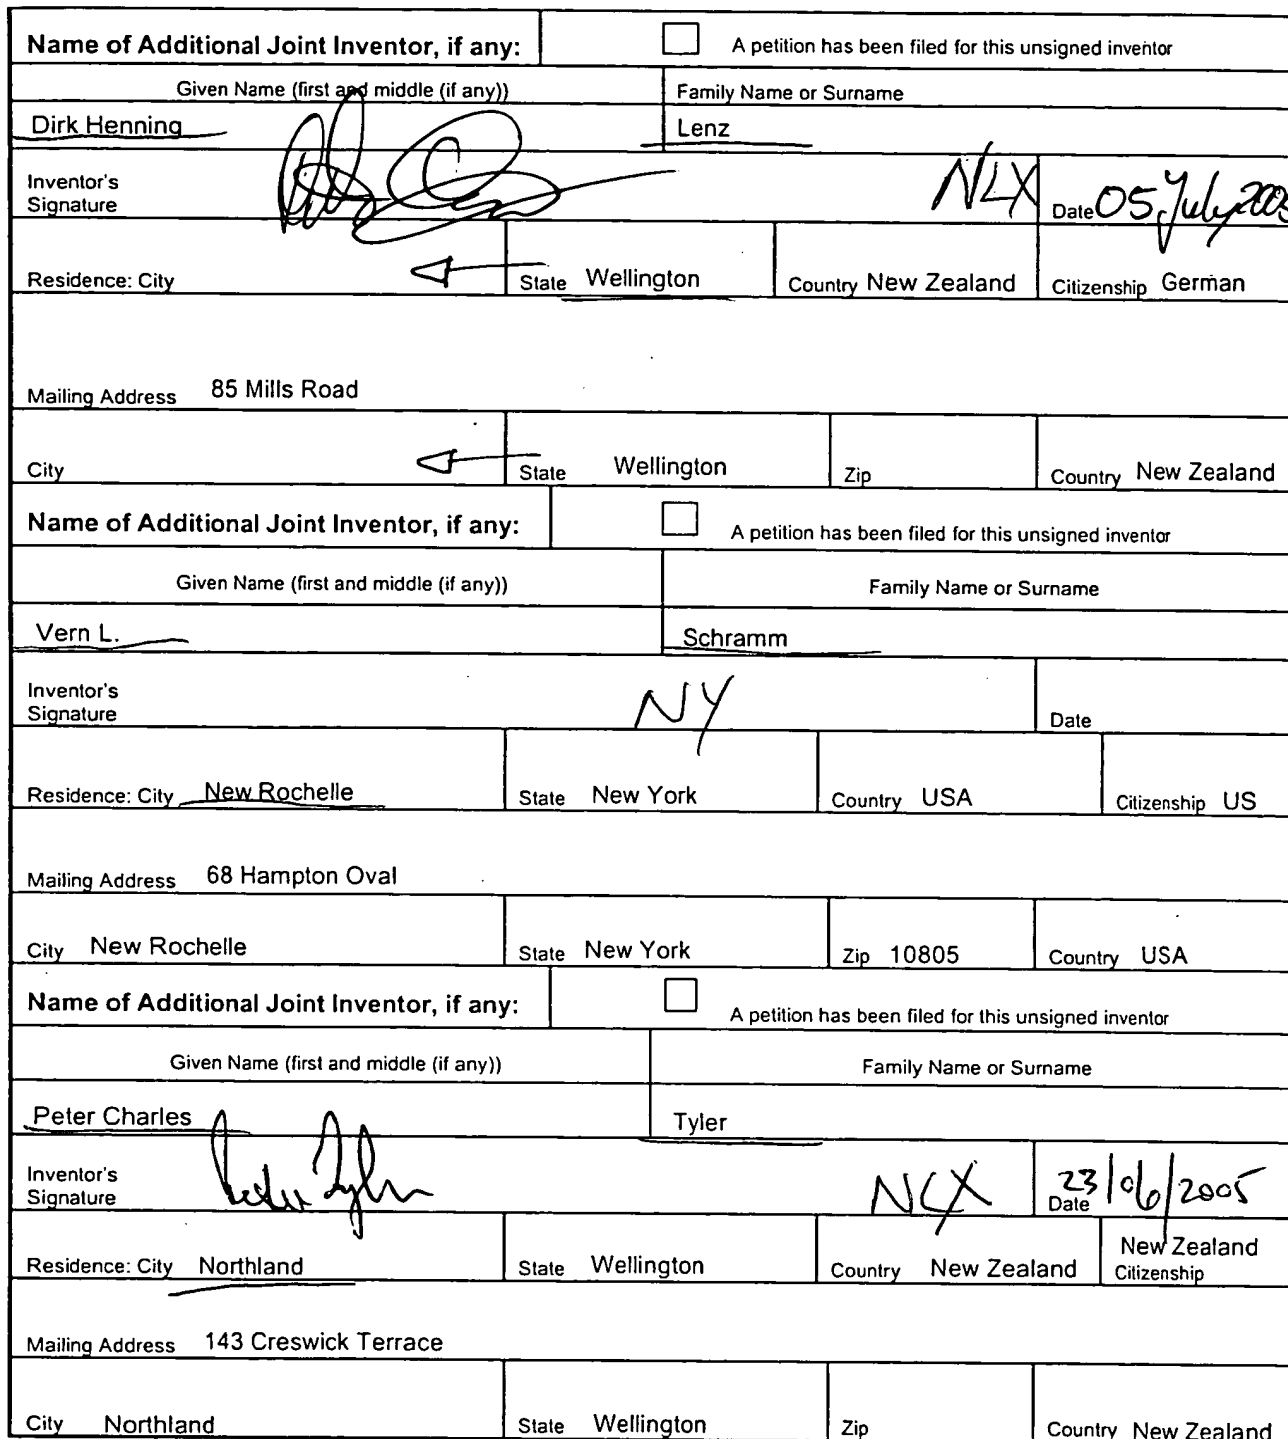 Name of Additional Joint Inventor, if any: A petition has been filed for this unsigned inventor
Given Name (first and middle (if any)) Family Name or Surname
Dirk Henning Lenz
Inventor's
Signature NLX Date 05 July 2005
Residence: City State Wellington Country New Zealand Citizenship German
Mailing Address 85 Mills Road
City State Wellington Zip Country New Zealand
Name of Additional Joint Inventor, if any: A petition has been filed for this unsigned inventor
Given Name (first and middle (if any)) Family Name or Surname
Vern L. Schramm
Inventor's
Signature NY Date
Residence: City New Rochelle State New York Country USA Citizenship US
Mailing Address 68 Hampton Oval
City New Rochelle State New York Zip 10805 Country USA
Name of Additional Joint Inventor, if any: A petition has been filed for this unsigned inventor
Given Name (first and middle (if any)) Family Name or Surname
Peter Charles Tyler
Inventor's
Signature Peter Tyler NLX Date 23/06/2005
Residence: City Northland State Wellington Country New Zealand New Zealand Citizenship
Mailing Address 143 Creswick Terrace
City Northland State Wellington Zip Country New Zealand